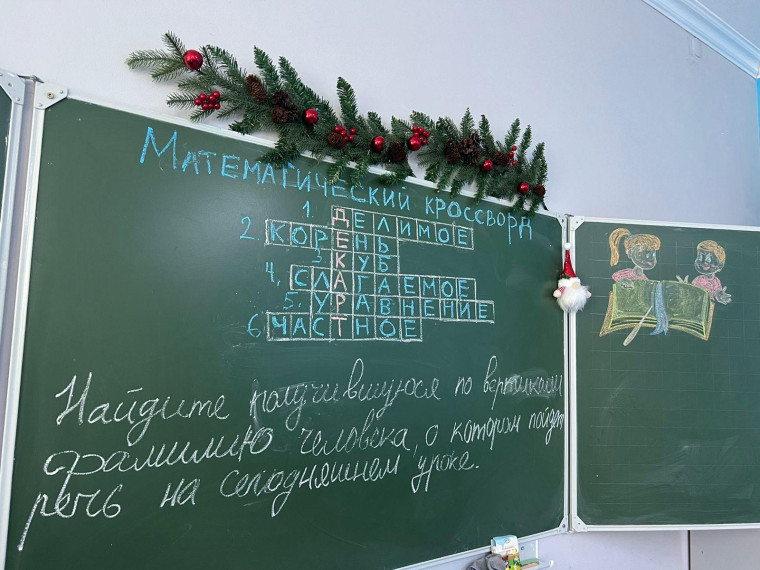 Математический кроссворд
1. ДЕЛИМОЕ
2. КОРЕНЬ
3. КУБ
4. СЛАГАЕМОЕ
5. УРАВНЕНИЕ
6. ЧАСТНОЕ
Найдите получившуюся по вертикали
фамилию человека, о котором пойдет
речь на сегодняшнем уроке.